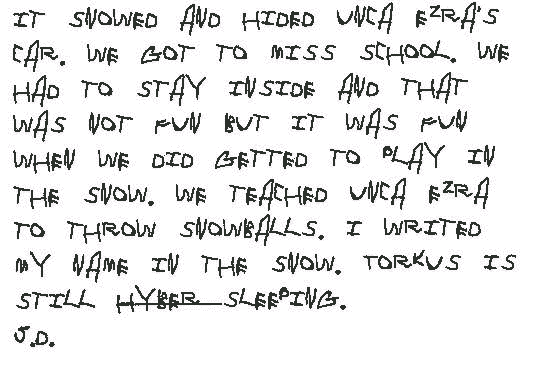 IT SNOWED AND HIDED UNCA EZRA'S
CAR. WE GOT TO MISS SCHOOL. WE
HAD TO STAY INSIDE AND THAT
WAS NOT FUN BUT IT WAS FUN
WHEN WE DID GETTED TO PLAY IN
THE SNOW. WE TEACHED UNCA EZRA
TO THROW SNOWBALLS. I WRITED
MY NAME IN THE SNOW. TORKUS IS
STILL HYBER SLEEPING.
J.D.